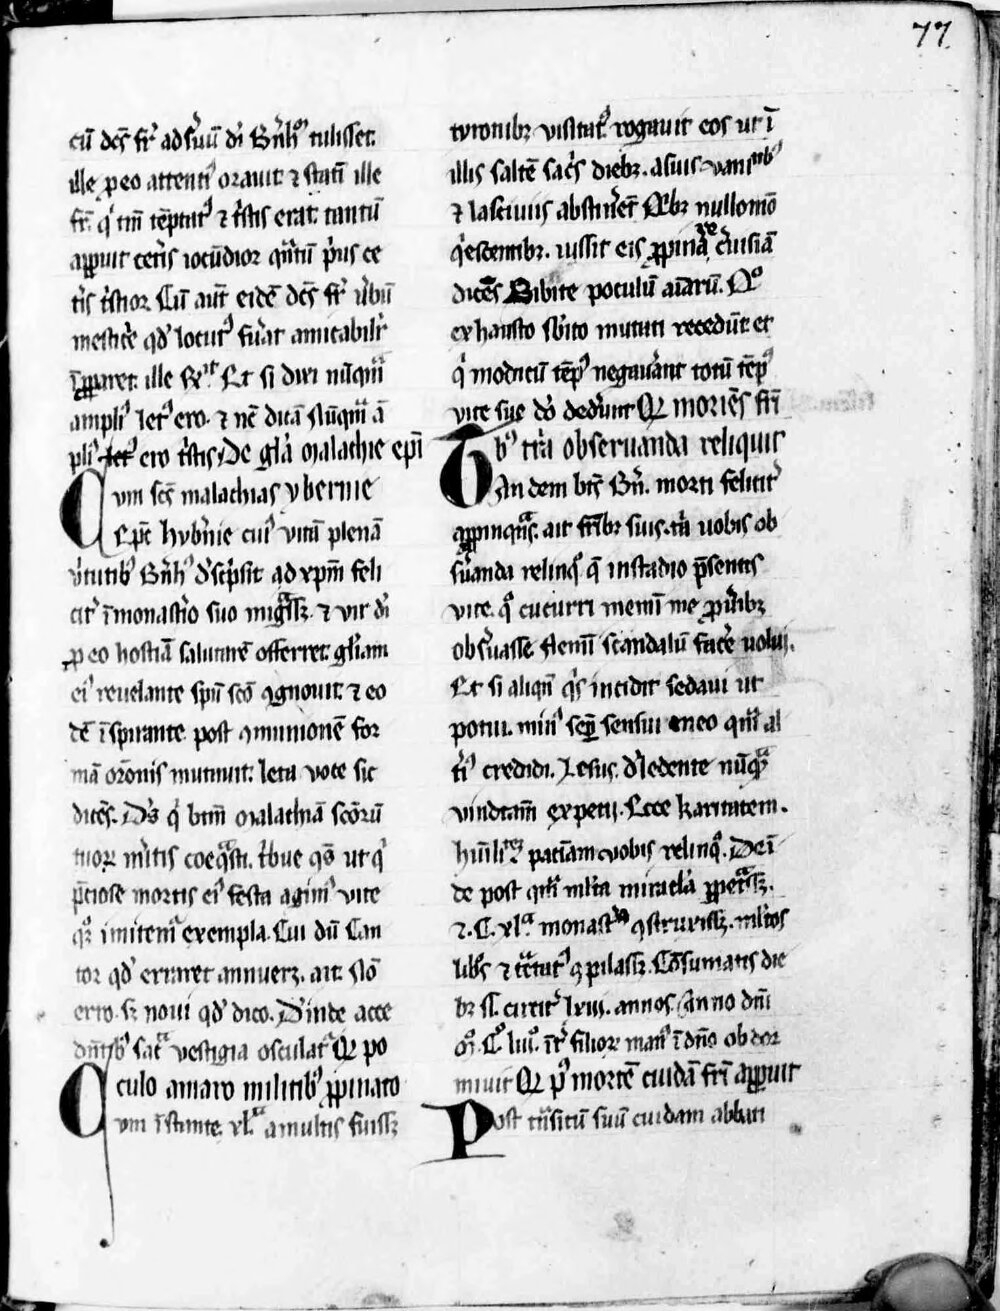 77
cū dc̄s fr̄ ad s̄uū di Bn̄hº tulisset.
ille ꝓ eo attenti orauit ⁊ statī ille
fr̄. q' tm̄ tēptatꝰ ⁊ tͥstis erat. tantū
apparuit ceteris iocūdior qͣntū pͥus ce
tͥs tͥstior. Cū aut̄ eidē dc̄s fr̄ ūbū
mestiē qd' locutꝰ fuͥat amicabilit̄
ille Et si dixi nūqͣm
ampliꝰ letꝰ ero. ⁊ nc̄ dicā nūqͣm ā
pliꝰ ero tͥstis De gl̄a malachie ep̄i
Cum sc̄s malachias yberine
Ep̄c hybͥnie cuiꝰ vitā plenā
v̄tutibꝰ Bn̄hꝰ dͥscͥpsit ad xp̄m feli
cit̄ ī monast̄io suo migͣssꝫ. ⁊ vir dī
ꝓ eo hostiā salutarē offerret. gl̄iam
eiꝰ reuelante spū sc̄o ꝯgnouit ⁊ eo
dē īspirante post ꝯmunionē for
mā or̄onis mutauit. leta voce sic
dicēs. Dꝰs q' btm̄ malachiā sc̄orū
tuoꝝ m̄itis coeqͣsti. tͥbue qͣs ut qͥ
p̄ciose mortis eiꝰ festa agimꝰ vite
qꝫ imitemͣ exempla. Cui dū Can
tor qd' erraret annueꝫ. ait. Nō
erro. sꝫ noui qd' dico. Dͥinde acce
dn̄tibꝰ sacͣ vestigia osculatͣ Qꝫ po
culo amaro militibꝰ ꝓpinato
Cum īstante xlͣ a multis fuissꝫ
tyronibꝫ visitatꝰ rogauit eos ut ī
illis saltē sacͥs diebꝫ. a suis vanitͥbꝰ
⁊ lasciuiis abstin̄et̄ Qͥbꝫ nullomō
qͥescentibꝫ. iussit eis ꝓpinaͬe c̄uisiā
dicēs Bibite poculū aīarū. Qº
exhausto sb̄ito mutati recedūt et
q' modicū tēpꝰ negauͣant totū tēpꝰ
vite sue dō dedͥunt Qꝫ moriēs fr̄i
bꝰ tͥa obseruanda reliquit
Tandem bt̄s Bn̄. morti felicit̄
appinqͣns. ait fr̄ibꝫ suis. tͥa uobis ob
s̄uanda relinqꝰ q̄ in stadio p̄sentis
vite. qº cucurri memī me ꝓ viribꝫ
obs̄uasse. Nemī scandalū facͤe uolui.
Et si aliqn̄ qͥs incidit sedaui ut
potui. minꝰ semp̄ sensui meo qͣm al
tͥiꝰ credidi. Lesus. dͤ ledente nūqͣꝫ
vindictam̄ expetij. Ecce karitatem.
hūilitͤꝫ patīam uobis relinqº. Deī
de post qͣm ml̄ta miracl̄a ꝓpetͣssꝫ.
⁊. C. xlͣ monastͥia ꝯstruxissꝫ. ml̄tos
libͦs ⁊ tͣctatꝰ ꝯpilassꝫ. Cōsumatis die
bꝫ s̄. circit̄ lxiii. annos Anno dn̄i
mº. Cº. liiiº. īt̄ filioꝝ manꝰ ī dn̄o obdor
miuit Qꝫ pꝰ mortē cuidā fr̄i apparuit
Post tͣnsitū suū cuidam abbati